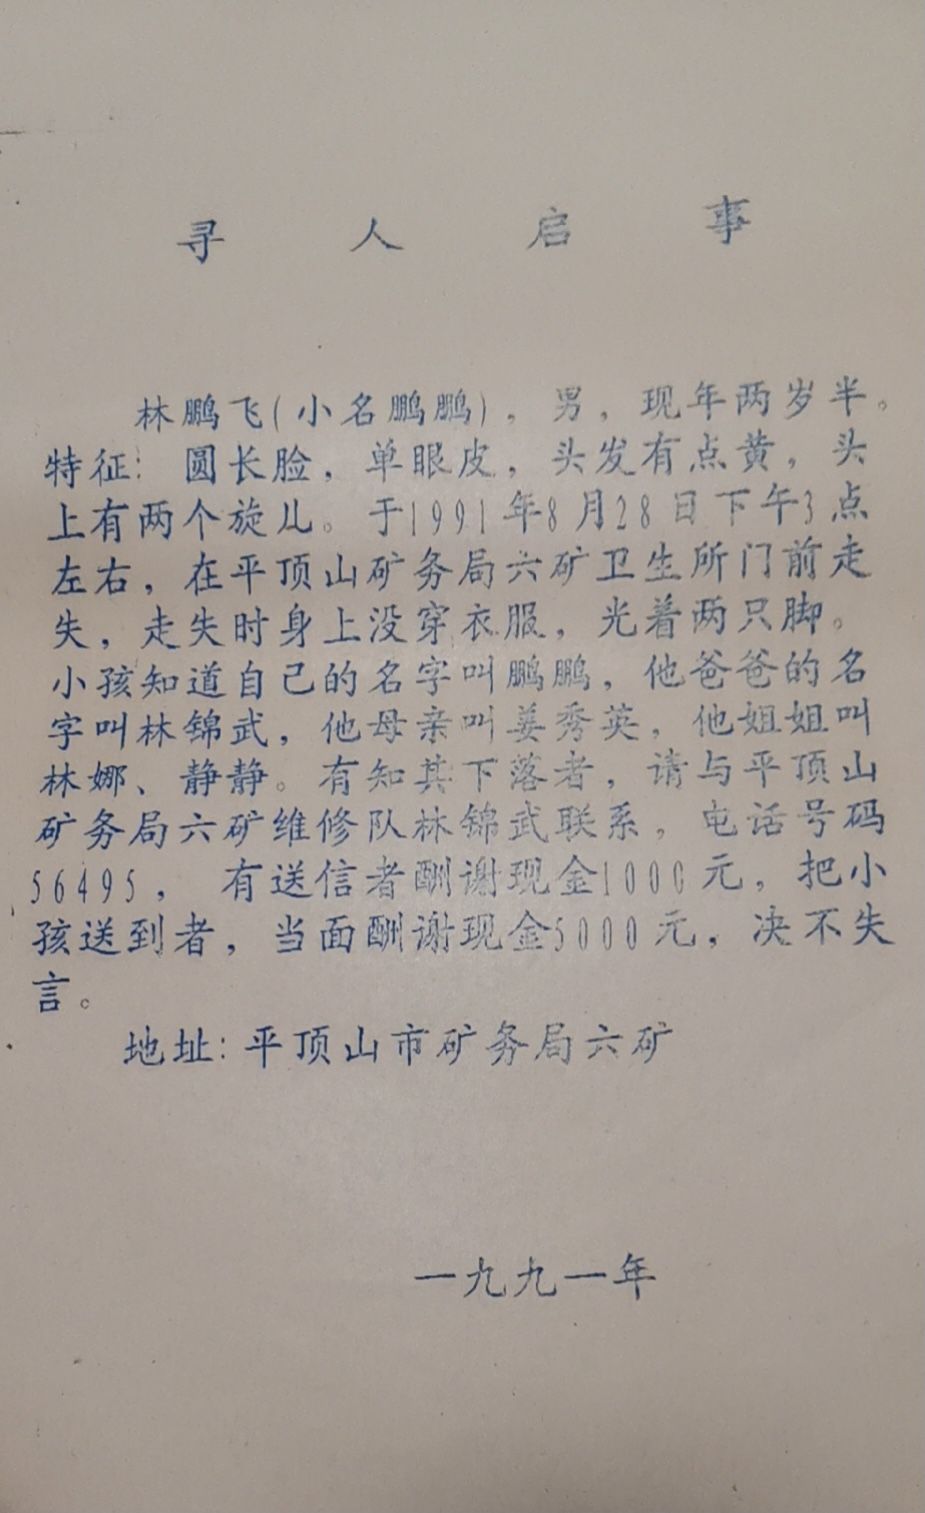 寻人启事
林鹏飞(小名鹏鹏)，男，现年两岁半。
特征：圆长脸，单眼皮，头发有点黄，头
上有两个旋儿。于1991年8月28日下午3点
左右，在平顶山矿务局六矿卫生所门前走
失，走失时身上没穿衣服，光着两只脚。
小孩知道自己的名字叫鹏鹏，他爸爸的名
字叫林锦武，他母亲叫姜秀英，他姐姐叫
林娜、静静。有知其下落者，请与平顶山
矿务局六矿维修队林锦武联系，电话号码
56495，有送信者酬谢现金1000元，把小
孩送到者，当面酬谢现金5000元，决不失
言。
地址：平顶山市矿务局六矿
一九九一年